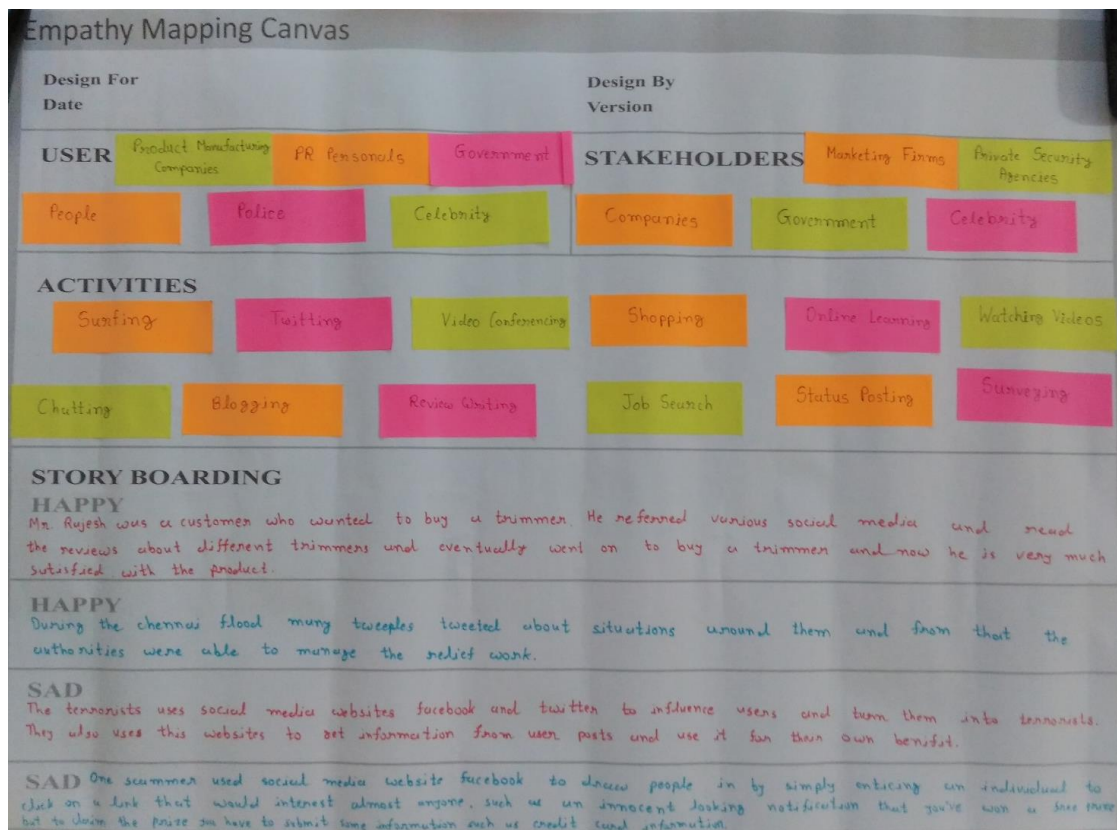 Empathy Mapping Canvas
Design For
Design By
Date
Version
USER
Product Manufacturing
Companies
PR Personals
Government
STAKEHOLDERS
Marketing Firms
Private Security
Agencies
People
Police
Celebrity
Companies
Government
Celebrity
ACTIVITIES
Surfing
Twitting
Video Conferencing
Shopping
Online Learning
Watching Videos
Chatting
Blogging
Review Writing
Job Search
Status Posting
Surveying
STORY BOARDING
HAPPY
Mr. Rajesh was a customer who wanted to buy a trimmer. He referred various social media and read
the reviews about different trimmers and eventually went on to buy a trimmer and now he is very much
satisfied with the product.
HAPPY
During the chennai flood many tweeples tweeted about situations around them and from that the
authorities were able to manage the relief work.
SAD
The terrorists uses social media websites facebook and twitter to influence users and turn them into terrorists.
They also uses this websites to get information from user posts and use it for their own benifit.
SAD One scammer used social media website facebook to draw people in by simply enticing an individual to
click on a link that would interest almost anyone, such as an innocent looking notification that you've won a free prize
but to claim the prize you have to submit some information such as credit card information